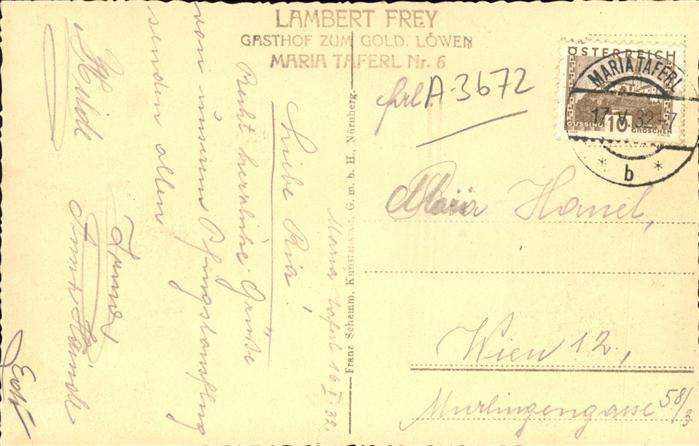 LAMBERT FREY
GASTHOF ZUM GOLD. LÖWEN
MARIA TAFERL Nr. 6
Maria Taferl 16 V 32.
Liebe Ria!
Recht herzliche Grüße
von unserem Pfingstausflug
senden allen
Heide
Anna
Franz Schemm, Kunstanstalt, G. m. b. H., Nürnberg.
frl. A-3672
ÖSTERREICH
GÜSSING
10
GROSCHEN
MARIA TAFERL
17. V. 32-7
* b *
Maria Hanel,
Wien 12.,
Murlingengasse 58/3